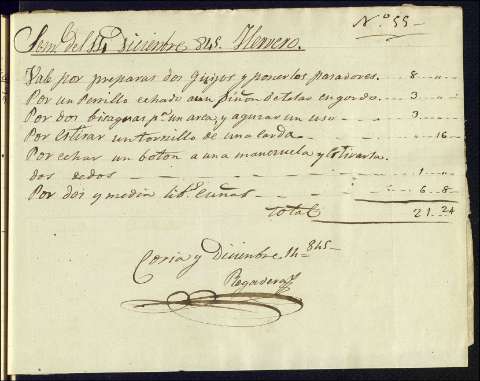 Nº 55
Semª del 14 Diciembre 845. Herrero.
Vale por preparar dos Guijos y ponerlos paradores. 8 "
Por un Perrillo echado a un piñon de telas en gordo. 3 "
Por dos bisagras pª un arca, y aguzar un uso 3 "
Por estirar un tornillo de una carda " 16
Por echar un boton a una manezuela y estirarla
dos dedos 1 "
Por dos y media libˢ cuñas 6 8
Total 21 24
Coria y Diciembre 14 845
Regadera